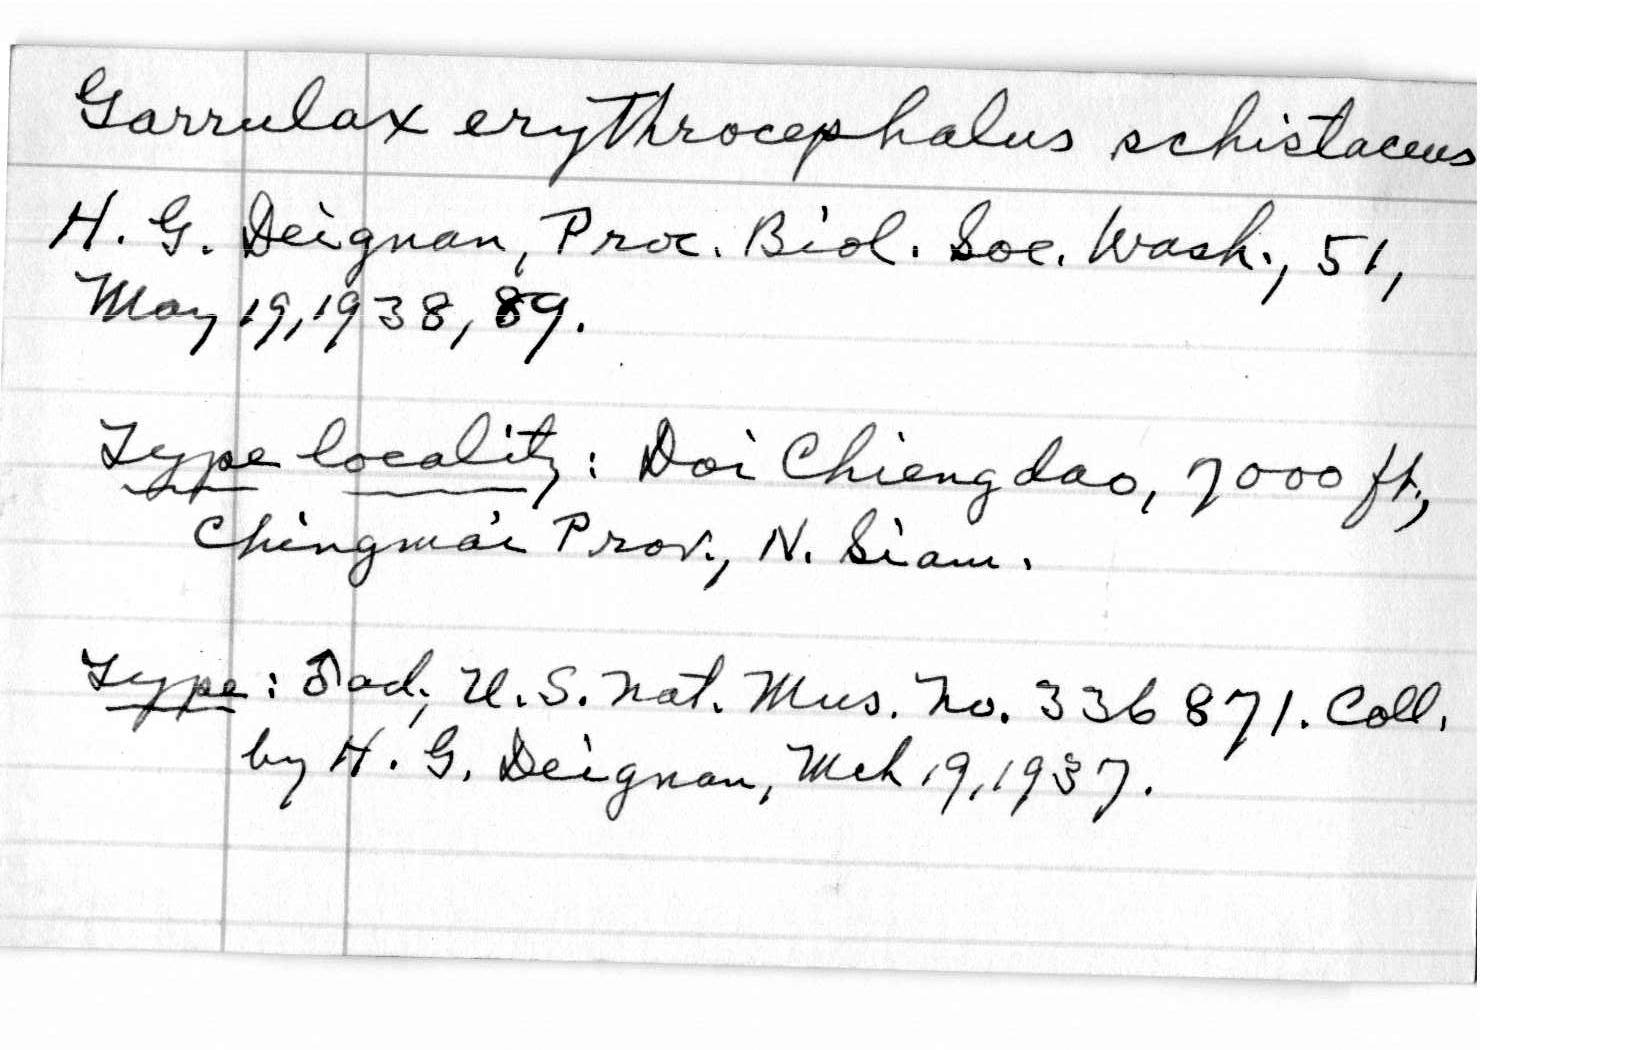 Garrulax erythrocephalus schistaceus
H. G. Deignan, Proc. Biol. Soc. Wash., 51,
May 19, 1938, 89.
Type locality: Doi Chiengdao, 7000 ft.,
Chingmai Prov., N. Siam.
Type: ♂ ad., U.S. Nat. Mus. No. 336871. Coll.
by H. G. Deignan, Mch 19, 1937.